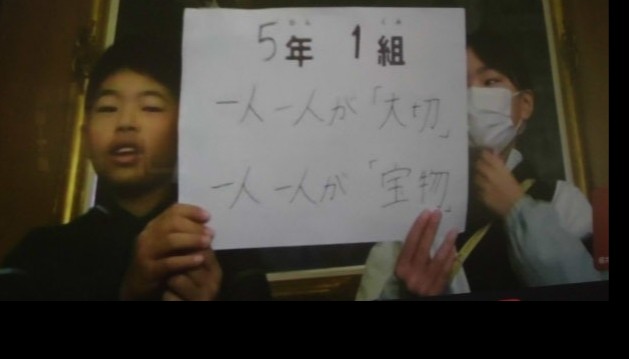 5年 1組
一人一人が「大切」
一人一人が「宝物」